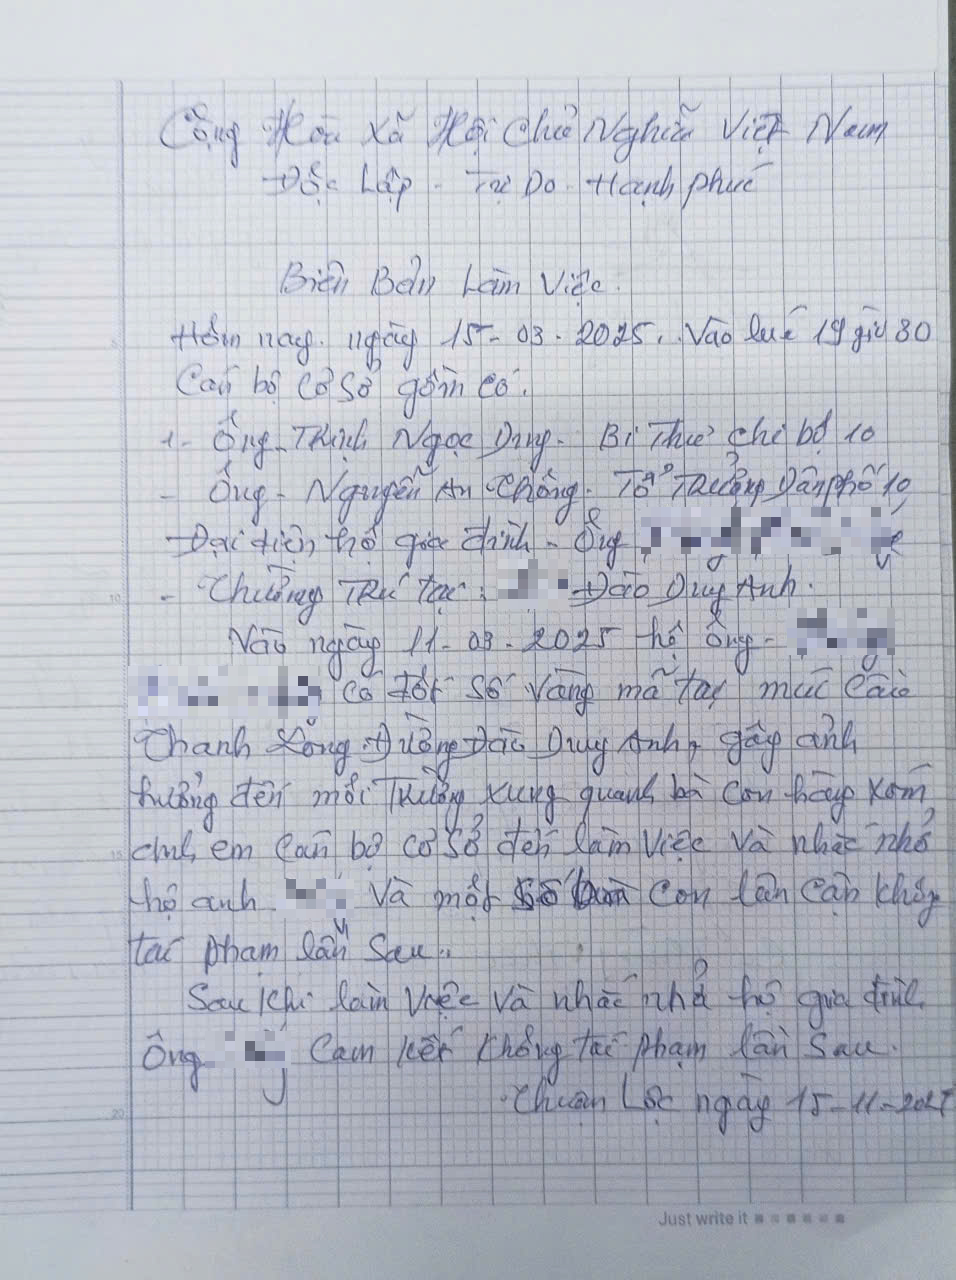 Cộng Hòa Xã Hội Chủ Nghĩa Việt Nam
Độc Lập - Tự Do - Hạnh phúc
Biên Bản Làm Việc.
Hôm nay. ngày 15-03-2025. Vào lúc 19 giờ 30
Cán bộ cơ sở gồm có.
1- Ông Trịnh Ngọc Dung - Bí Thư chi bộ 10
- Ông - Nguyễn An Thống - Tổ Trưởng Dân phố 10
- Đại diện hộ gia đình - Ông
- Thường Trú tại: Đào Duy Anh.
Vào ngày 11-03-2025 hộ ông -
có đốt số vàng mã tại múc Cầu
Thanh Long Đường Đào Duy Anh, gây ảnh
hưởng đến môi Trường xung quanh bà con hàng xóm
anh em cán bộ cơ sở đến làm việc và nhắc nhở
hộ anh và một số bà con lân cận không
tái phạm lần sau.
Sau khi làm việc và nhắc nhở hộ gia đình
ông cam kết không tái phạm lần sau.
Thuận Lộc ngày 15-11-2025
Just write it